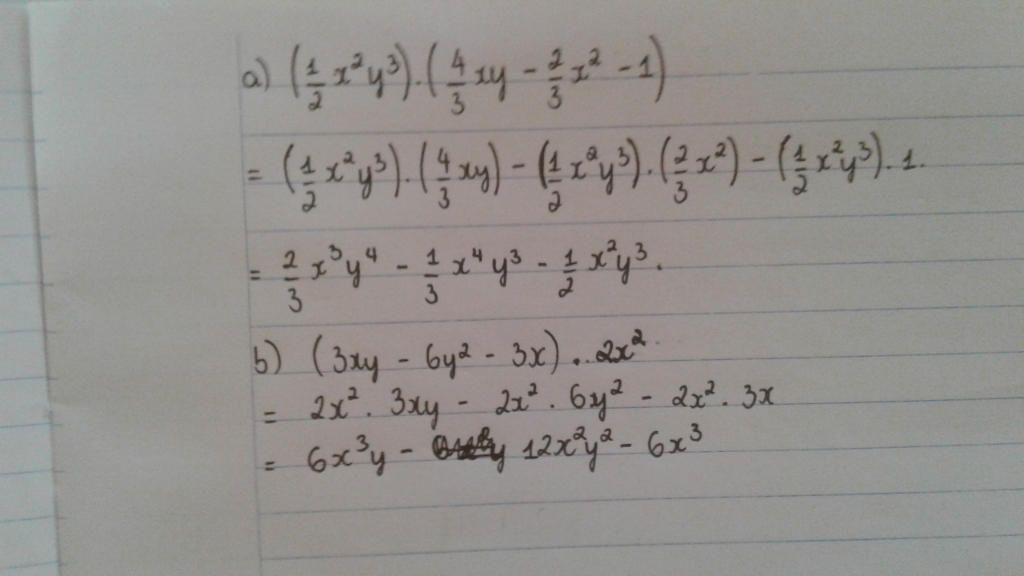 a) (1/2 x²y³).(4/3 xy - 2/3 x² - 1)
= (1/2 x²y³).(4/3 xy) - (1/2 x²y³).(2/3 x²) - (1/2 x²y³).1.
= 2/3 x³y⁴ - 1/3 x⁴y³ - 1/2 x²y³.
b) (3xy - 6y² - 3x) . 2x²
= 2x² . 3xy - 2x² . 6y² - 2x² . 3x
= 6x³y - 12x²y² - 6x³